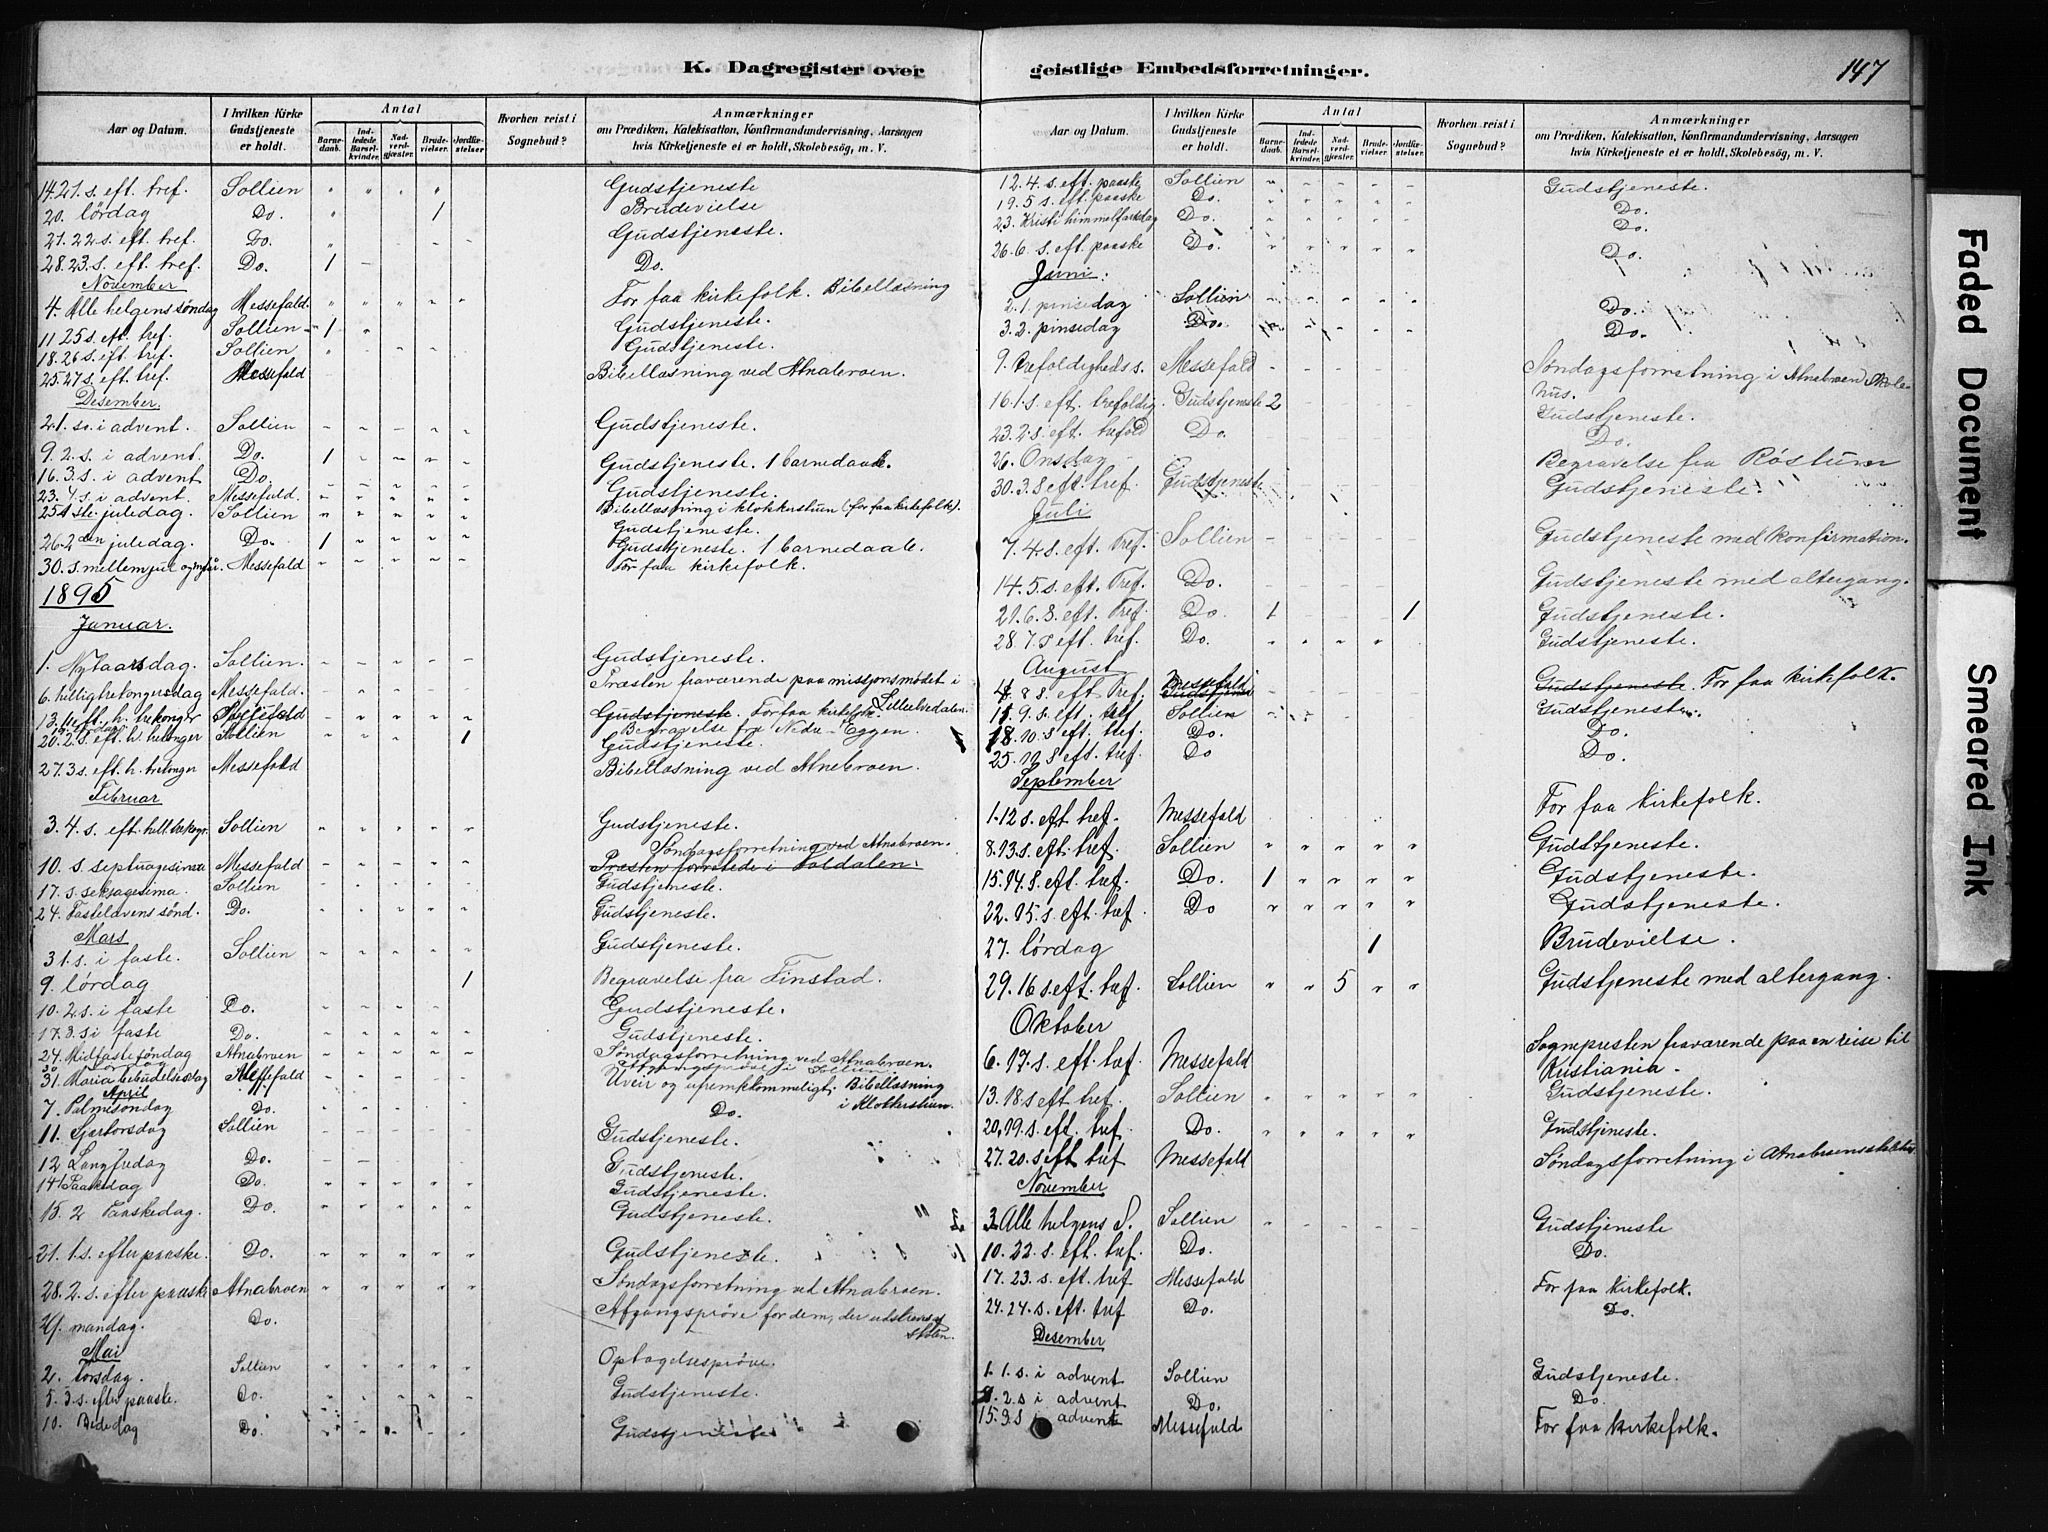 K. Dagregister over geistlige Embedsforretninger.
147
Aar og Datum.
I hvilken Kirke Gudstjeneste er holdt.
Antal
Barnedaab.
Indledede Barselkvinder.
Nadverdgjester.
Brudevielser.
Jordfæstelser.
Hvorhen reist i Sognebud?
Anmærkninger
om Prædiken, Katekisation, Konfirmandundervisning, Aarsagen
hvis Kirketjeneste ei er holdt, Skolebesög, m. V.
14. 21. s. eft. tref. Sollien Gudstjeneste
20. lördag Do. 1 Brudevielse
21. 22 s. eft. tref. Do. Gudstjeneste.
28. 23. s. eft. tref. Do. 1 Do.
November
4. Alle helgens söndag Messefald. For faa kirkefolk. Bibellæsning
11 25 s. eft. tref. Sollien 1 Gudstjeneste.
18. 26 s. eft. tref. Sollien Gudstjeneste.
25. 27 s. eft. tref. Messefald Bibellæsning ved Atnabroen.
Desember.
2. 1. s. i advent. Sollien Gudstjeneste.
9. 2. s. i advent. Do. 1 Gudstjeneste. 1 barnedaab.
16. 3. s. i advent Do. Gudstjeneste.
23. 4. s. i advent. Messefald. Bibellæsning i klokkerstuen (for faa kirkefolk).
25 1ste juledag. Sollien Gudstjeneste.
26. 2den juledag. Do. 1 Gudstjeneste. 1 barnedaab.
30. s. mellem jul og nytaar. Messefald For faa kirkefolk.
1895
Januar.
1. Nytaarsdag. Sollien. Gudstjeneste.
6. helligtrekongersdag Messefald. Præsten fraværende paa missjonsmödet i Lilleelvedalen.
13. 1. s. eft. h. trekonger Messefald Gudstjeneste. For faa kirkefolk.
Begravelse fra Nedre-Eggen.
20. 2. s. eft. h. trekonger Sollien 1 Gudstjeneste.
27. 3 s. eft. h. trekonger Messefald Bibellæsning ved Atnebroen.
Februar
3. 4. s. eft. hell. trekongr. Sollien Gudstjeneste.
Söndagsforretning ved Atnabroen.
10. s. septuagesima Messefald Præsten forrettede i Foldalen.
17. s. seksagesima. Sollien Gudstjeneste.
24. Fastelavens sönd. Do. Gudstjeneste.
Mars
3 1. s. i faste. Sollien Gudstjeneste.
9. lördag 1 Begravelse fra Finstad.
10. 2 s. i faste Do. Gudstjeneste.
17. 3. s. i faste Do. Gudstjeneste.
24. Midfastesöndag Atnabroen Söndagsforretning ved Atnabroen.
30 Lördag Afgangspröve i Sollien
31. Maria bebudelsesdag Messefald Uveir og ufremkommeligt. Bibellæsning i Klokkerstuen.
April
7. Palmesöndag Do. Do.
11. Skjærtorsdag Sollien Gudstjeneste.
12 Langfredag Do. Gudstjeneste.
14 1 Paaskedag Do. Gudstjeneste.
15. 2 Paaskedag. Do. Gudstjeneste.
21. 1. s. efter paaske. Do. Gudstjeneste.
28. 2. s. efter paaske Atnabroen Söndagsforretning ved Atnabroen.
29. mandag. Do. Afgangspröve for dem, der udskreves af skolen.
Mai
2. Torsdag. Sollien Optagelsespröve.
5. 3. s. efter paaske. Do. Gudstjeneste.
10. Bededag Do. Gudstjeneste
Aar og Datum.
I hvilken Kirke Gudstjeneste er holdt.
Antal
Barnedaab.
Indledede Barselkvinder.
Nadverdgjester.
Brudevielser.
Jordfæstelser.
Hvorhen reist i Sognebud?
Anmærkninger
om Prædiken, Katekisation, Konfirmandundervisning, Aarsagen
hvis Kirketjeneste ei er holdt, Skolebesög, m. V.
12. 4. s. eft. paaske Sollien Gudstjeneste.
19. 5 s. eft. paaske Do. Do.
23. Kristi himmelfartsdag Do. Do.
26. 6. s. eft. paaske Do. Do.
Juni.
2. 1. pinsedag Sollien Do.
3. 2. pinsedag Do. Do.
9. Trefoldigheds s. Messefald Söndagsforretning i Atnabroen Skolehus.
16. 1. s. eft. trefoldig. Gudstjeneste 2 Gudstjeneste.
23. 2. s. eft. trefold Do. Do.
26. Onsdag Begravelse fra Röstuen
30. 3. s eft. tref. Gudstjeneste Gudstjeneste.
Juli
7. 4. s. eft. tref. Sollien Gudstjeneste med konfirmation.
14. 5. s. eft. Tref. Do. Gudstjeneste med altergang.
21. 6. s. eft. Tref. Do. 1 1 Gudstjeneste.
28. 7. s eft. tref. Do. Gudstjeneste.
August
4. 8 s. eft. Tref. Messefald Gudstjeneste. For faa kirkefolk.
11. 9. s. eft. tref Sollien Gudstjeneste.
18. 10. s eft. tref. Do. Do.
25. 11 s eft. tref. Do Do.
September
1. 12 s. eft tref. Messefald For faa kirkefolk.
8. 13. s. eft. tref. Sollien Gudstjeneste.
15. 14. s. eft. tref. Do. 1 Gudstjeneste.
22. 15. s. eft. tref. Do Gudstjeneste.
27. lördag 1 Brudevielse.
29. 16 s. eft. tref. Sollien 5 Gudstjeneste med altergang.
Oktober
6. 17. s. eft. tref. Messefald Sognepresten fraværende paa en reise til Kristiania.
13. 18. s eft. tref. Sollien Gudstjeneste.
20. 19. s. eft. tref. Do. Gudstjeneste.
27. 20. s eft. tref Messefald Söndagsforretning i Atnabroens skolehus
November
3. Alle helgens S. Sollien Gudstjeneste
10. 22. s. eft. tref. Do. Do.
17. 23. s. eft. tref Messefald For faa kirkefolk.
24. 24. s. eft. tref Do. Do.
Desember
1. 1. s. i advent Sollien Gudstjeneste.
8. 2. s i advent Do. Do
15. 3. s i advent Messefald For faa kirkefolk.
Faded Document
Smeared Ink